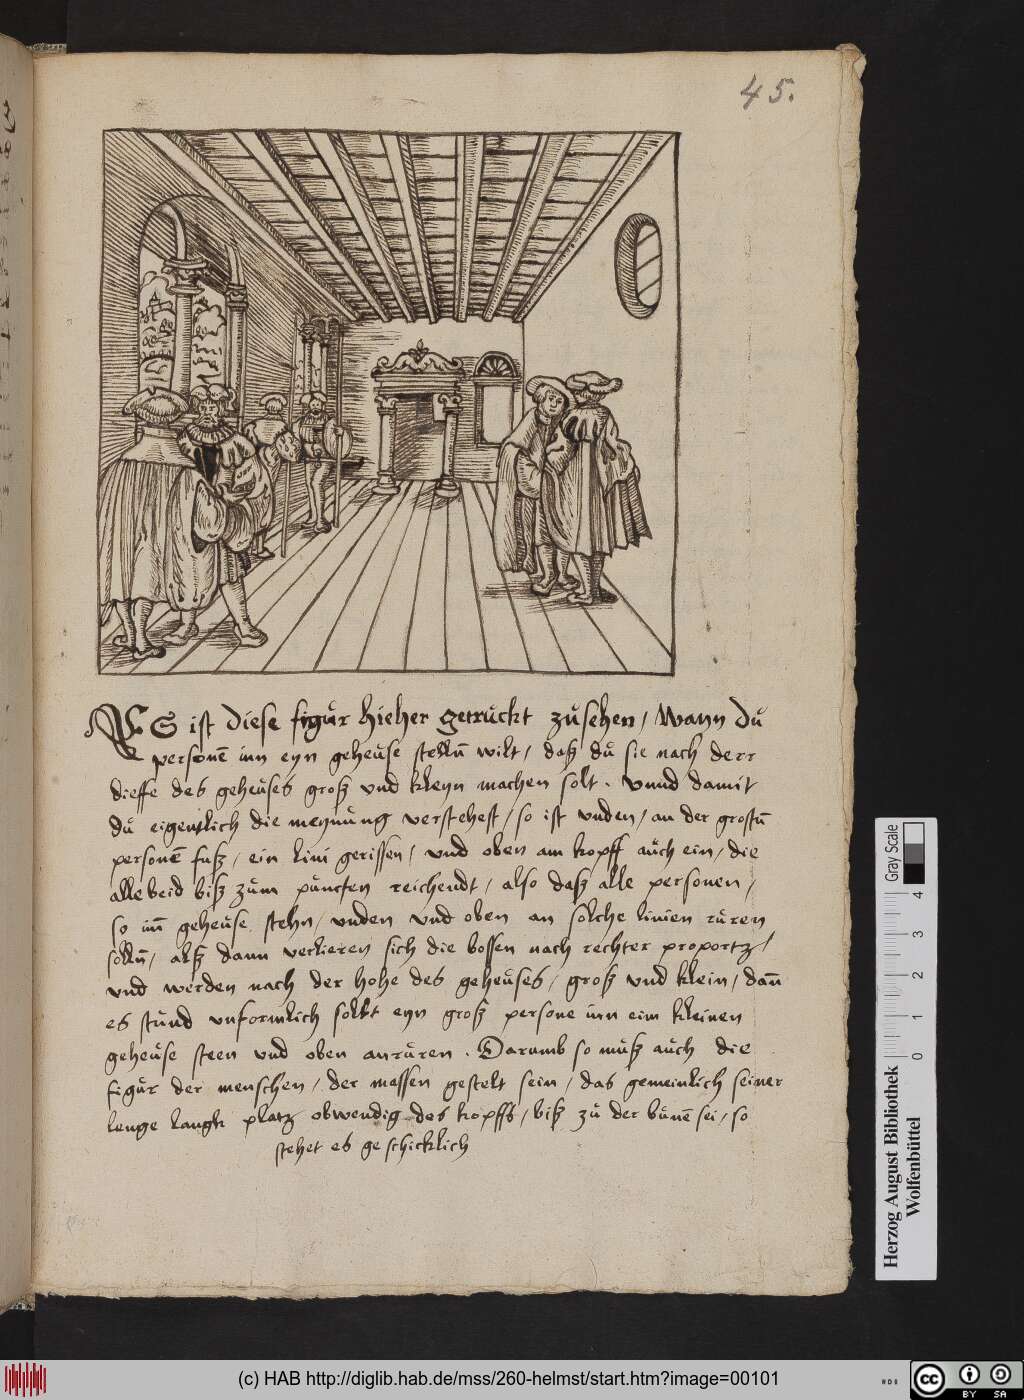 45.
ES ist diese figůr hieher getrůckt zůsehen / Wann dů
personē inn eyn geheůse stelln̄ wilt / daß dů sie nach derr
dieffe des geheůses groß vnd kleyn machen solt . Vnnd damit
dů eigentlich die meynůng verstehest / so ist vnden / an der grostn̄
personē fuß / ein lini gerissen / vnd oben am kopff aůch ein / die
allebeid biß zům půncten reichendt / also daß alle personen /
so inn̄ geheůse stehn / vnden vnd oben an solche linien růren
solln̄ / alß dann verlieren sich die bossen nach rechter proportz /
vnd werden nach der hohe des geheůses / groß vnd klein / dan̄
es stůnd vnformlich solbt eyn groß persone inn eim kleinen
geheůse steen vnd oben anrůren . Darumb so můß aůch die
figůr der menschen / der massen gestelt sein / das gemeinlich seiner
lenge langk platz obwendig des kopffs / biß zů der bůnē sei / so
stehet es geschicklich
Gray Scale
0 1 2 3 4
Herzog August Bibliothek
Wolfenbüttel
(c) HAB http://diglib.hab.de/mss/260-helmst/start.htm?image=00101
cc BY SA